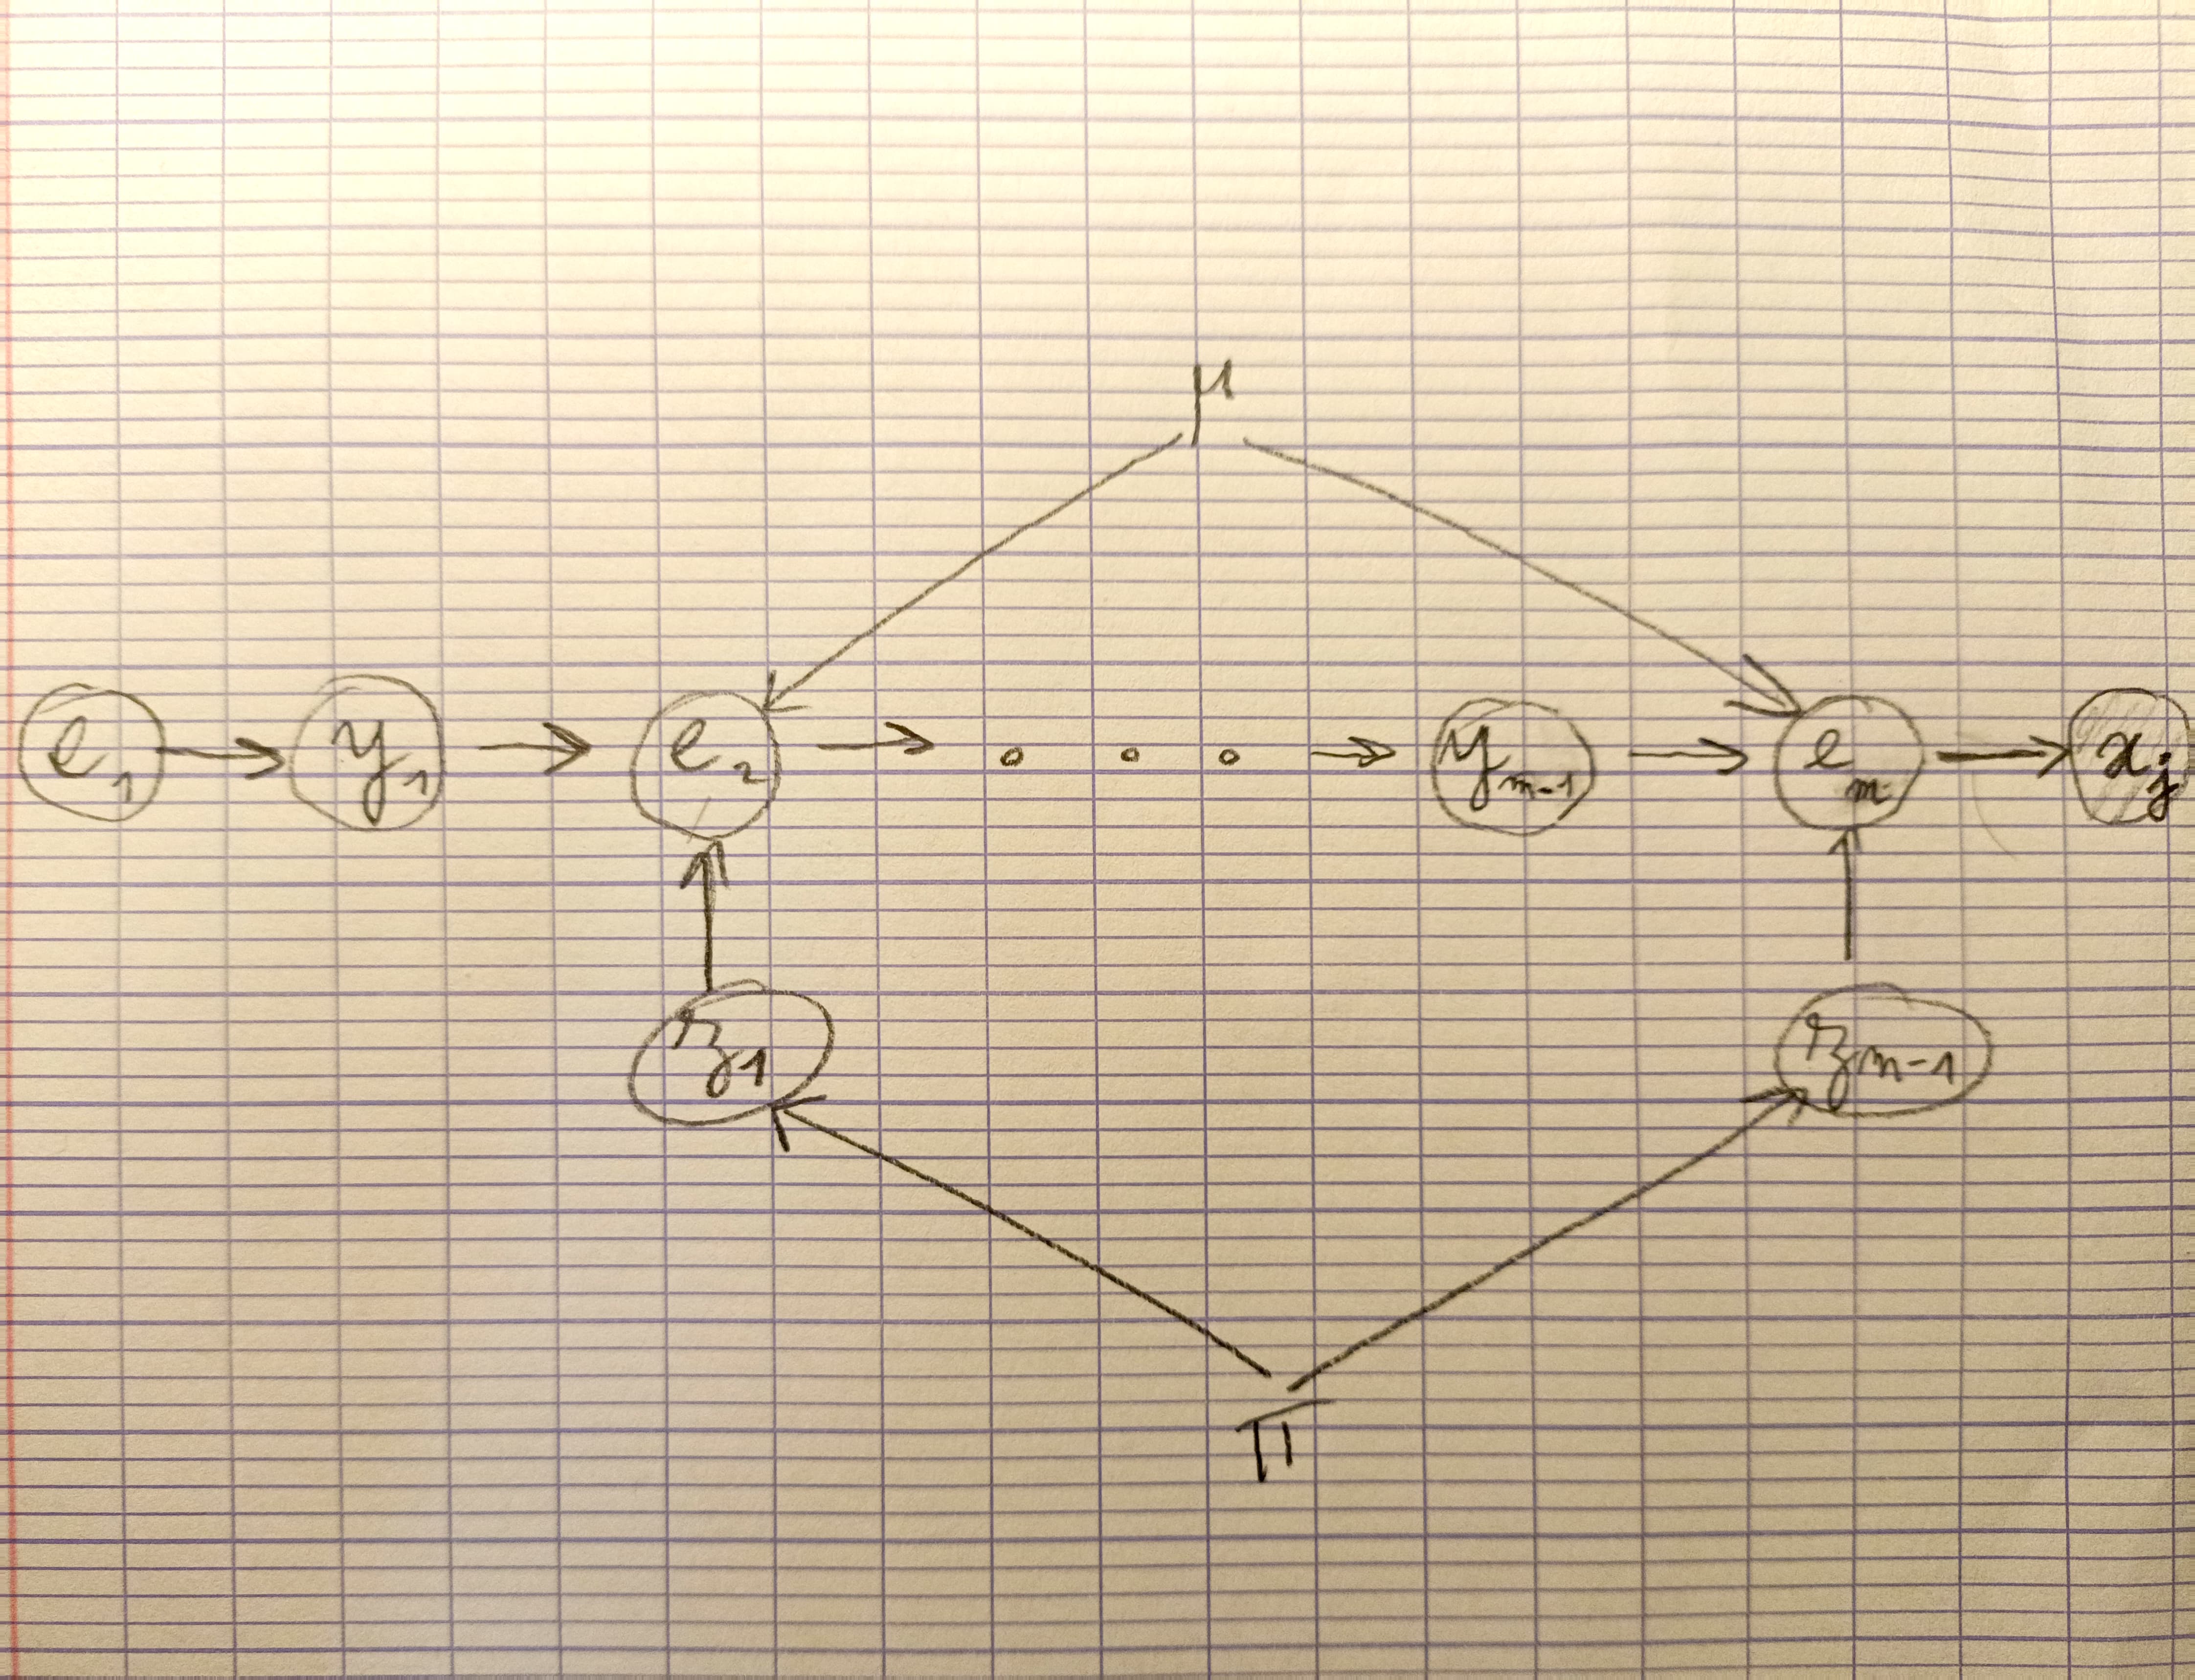 μ
e₁ → y₁ → e₂ → ∘ ∘ ∘ → y_{m-1} → e_m → x_j
z₁ z_{m-1}
π